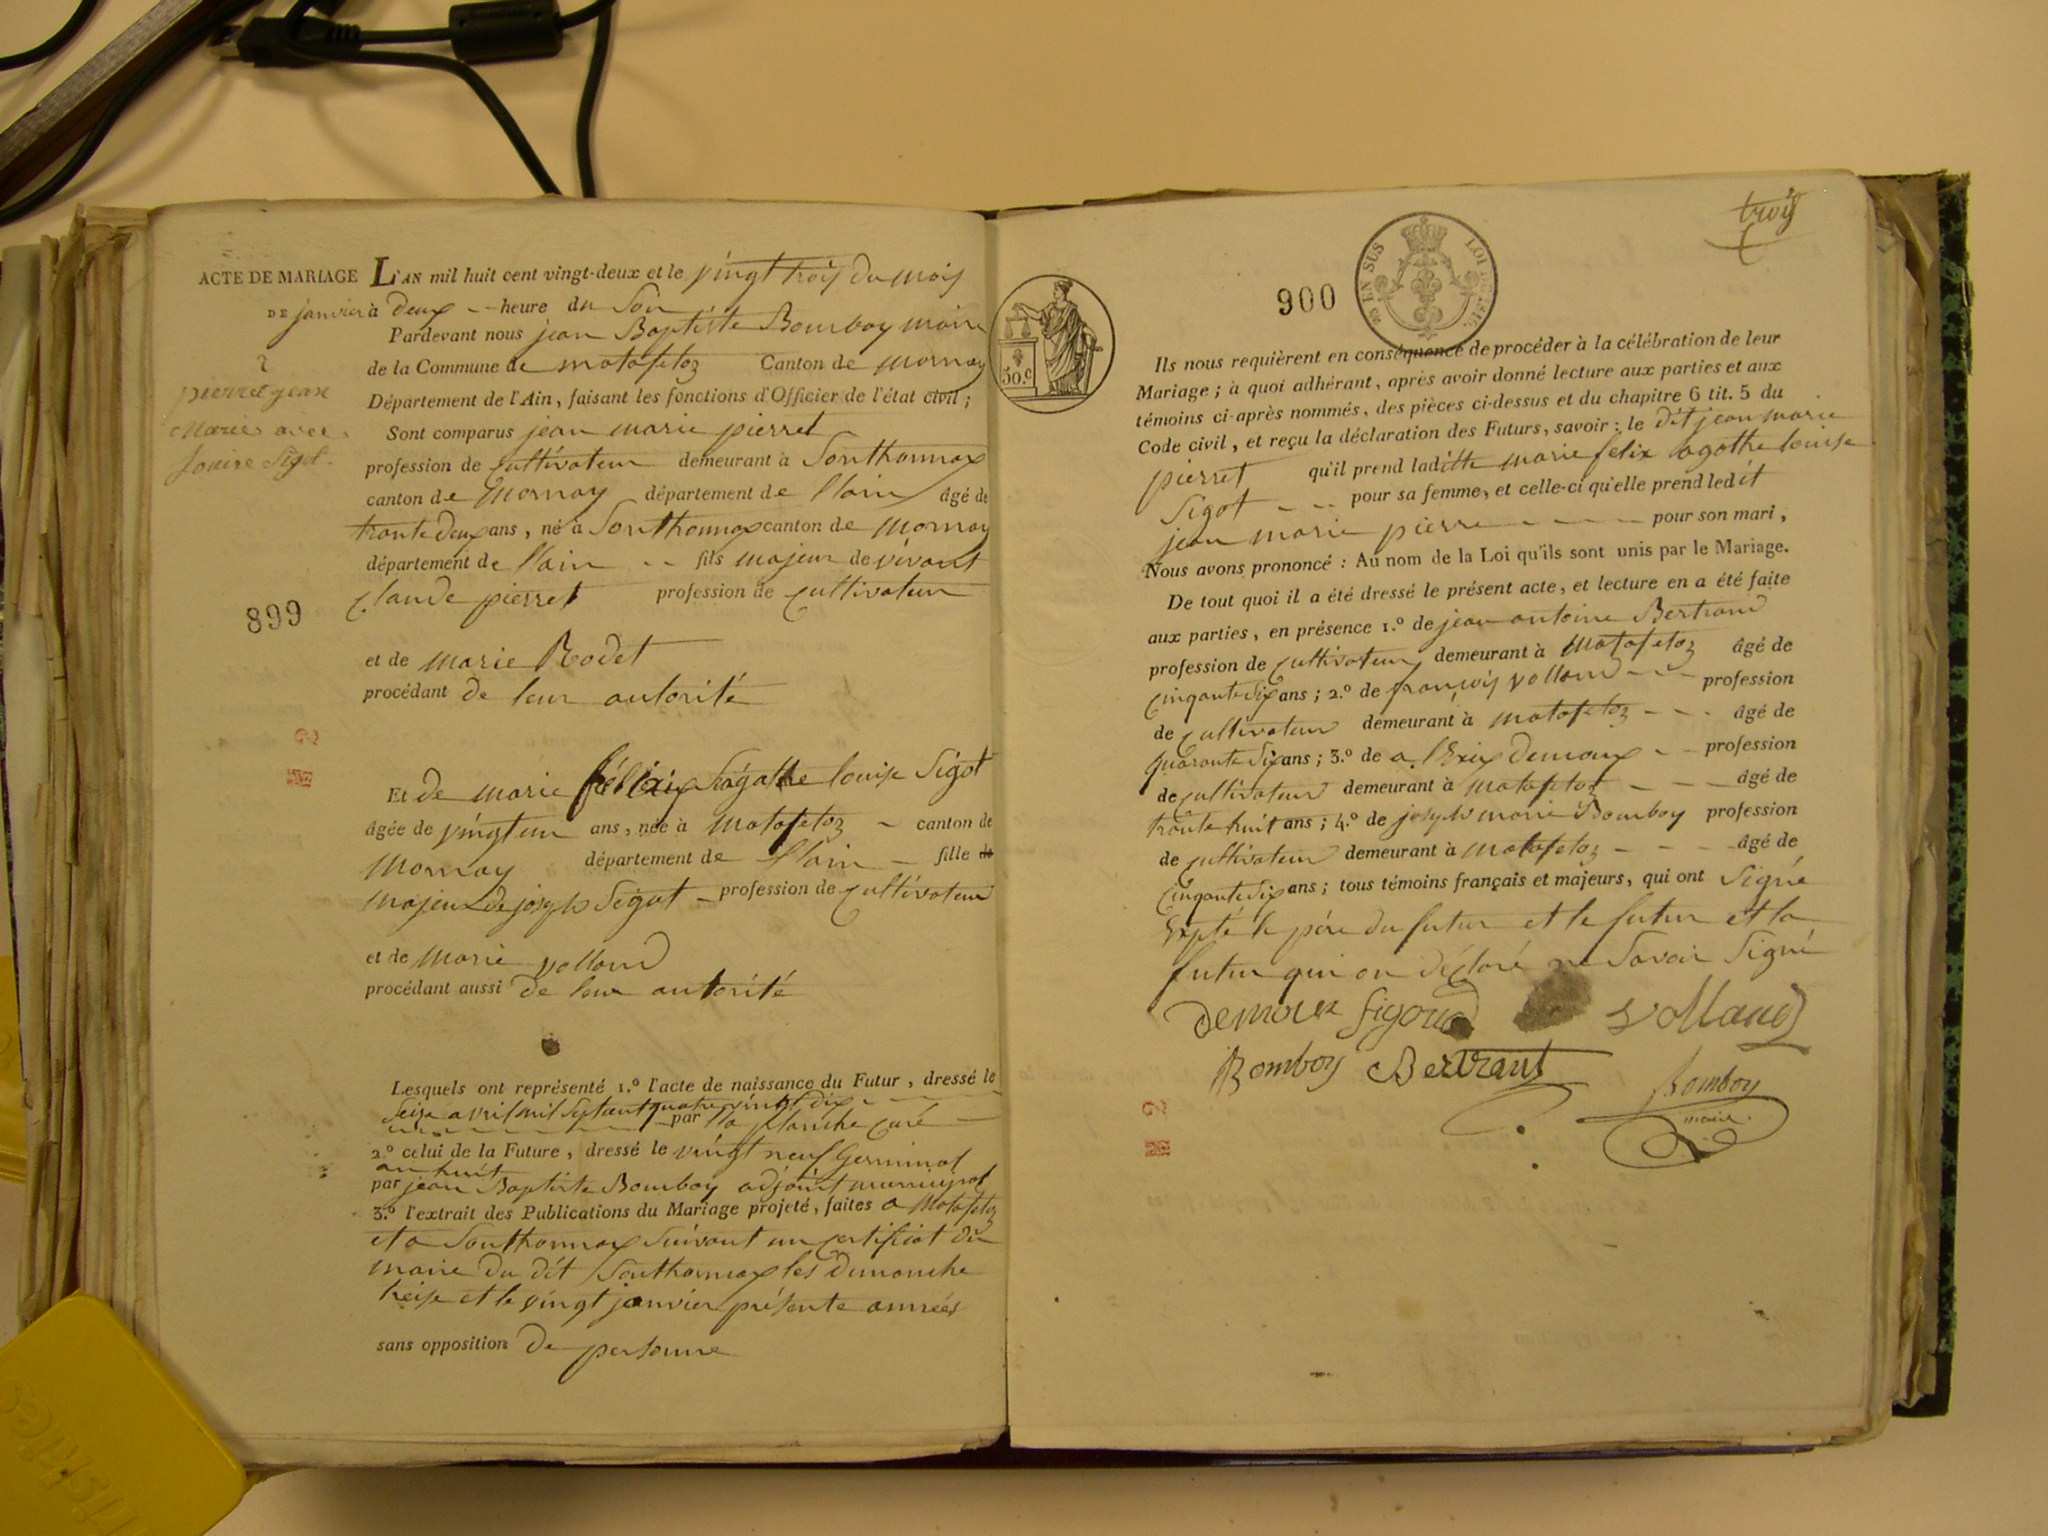 ACTE DE MARIAGE
L'AN mil huit cent vingt-deux et le vingt trois du mois
DE janvier à deux -- heure du Soir
Pardevant nous jean Baptiste Bomboy maire
de la Commune de matafelon Canton de mornay
Département de l'Ain, faisant les fonctions d'Officier de l'état civil;
2
pierret jean
Marie avec
louise Sigot.
Sont comparus jean marie pierret
profession de Cultivateur demeurant à Sonthonnax
canton de mornay département de l'lain âgé de
trante deux ans, né à Sonthonnax canton de mornay
département de l'lain -- fils majeur de vivant
Claude pierret profession de Cultivateur
899
et de marie Rodet
procédant de leur autorité
Et de marie félix agathe louise Sigot
âgée de vingt un ans, née à matafeloz - canton de
mornay département de l'lain - fille de
majeur de joseph Sigot - profession de Cultivateur
et de marie volland
procédant aussi de leur autorité
Lesquels ont représenté 1.º l'acte de naissance du Futur, dressé le
Seise avril mil Sept cent quatre vingt dix
par la planche curé
2.º celui de la Future, dressé le vingt neuf Germinal
an huit
par jean Baptiste Bomboy adjoint municipal
3.º l'extrait des Publications du Mariage projeté, faites a Matafeloz
et a Sonthonnax Suivant un Certificat du
maire du dit Sonthonnax les Dimanche
treise et le vingt janvier présente années
sans opposition de personne
trois
900
EN SUS
LOI
50.c
Ils nous requièrent en conséquence de procéder à la célébration de leur
Mariage; à quoi adhérant, après avoir donné lecture aux parties et aux
témoins ci-après nommés, des pièces ci-dessus et du chapitre 6 tit. 5 du
Code civil, et reçu la déclaration des Futurs, savoir: le dit jean marie
pierret qu'il prend laditte marie felix agathe louise
Sigot -- pour sa femme, et celle-ci qu'elle prend ledit
jean marie pierre ---- pour son mari,
Nous avons prononcé: Au nom de la Loi qu'ils sont unis par le Mariage.
De tout quoi il a été dressé le présent acte, et lecture en a été faite
aux parties, en présence 1.º de jean antoine Bertrand
profession de Cultivateur demeurant à matafeloz âgé de
Cinqante Six ans; 2.º de françois volland --- profession
de Cultivateur demeurant à matafeloz --- âgé de
quarante Six ans; 3.º de a l'Exix demoux -- profession
de Cultivateur demeurant à matafeloz --- âgé de
trante huit ans; 4.º de joseph marie Bomboy profession
de Cultivateur demeurant à matafeloz --- âgé de
Cinqante Six ans; tous témoins français et majeurs, qui ont Signé
Expté le père du futur et le futur et la
futur qui on déclaré ne Savoir Signé
Demoux Sigoud volland
Bomboy Bertrant
Bomboy
maire.